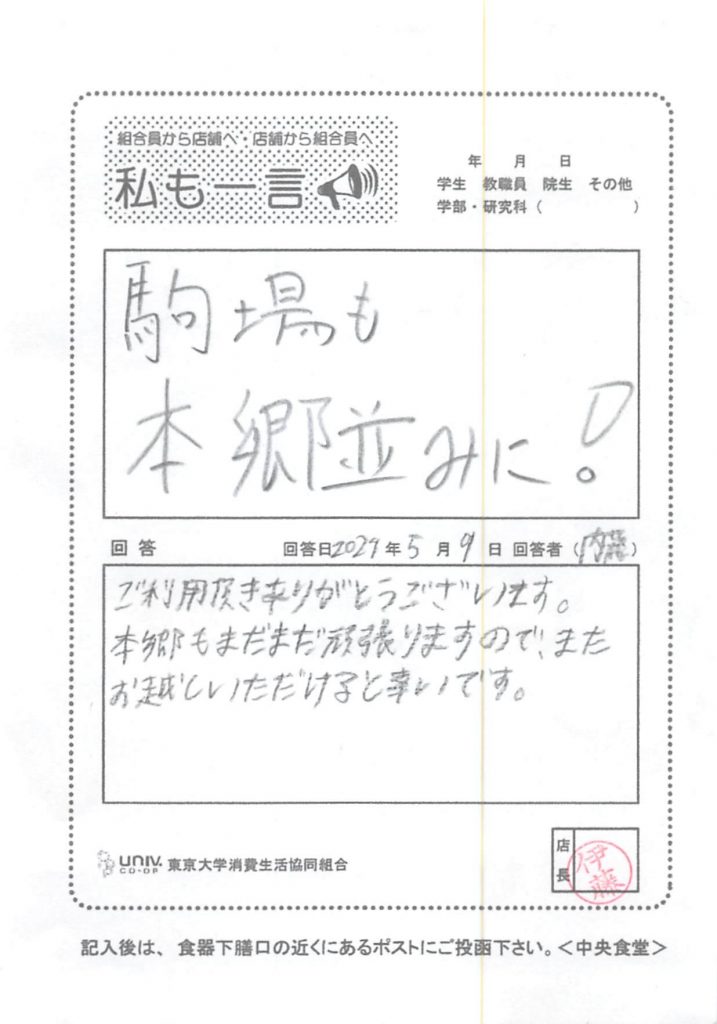 組合員から店舗へ・店舗から組合員へ
私も一言
年 月 日
学生 教職員 院生 その他
学部・研究科( )
駒場も
本郷並みに!
回答 回答日2024年5月9日 回答者(内藤)
ご利用頂き有りがとうございます。
本郷もまだまだ頑張りますので、また
お越しいただけると幸いです。
UNIV. CO-OP 東京大学消費生活協同組合
店長 伊藤
記入後は、食器下膳口の近くにあるポストにご投函下さい。<中央食堂>